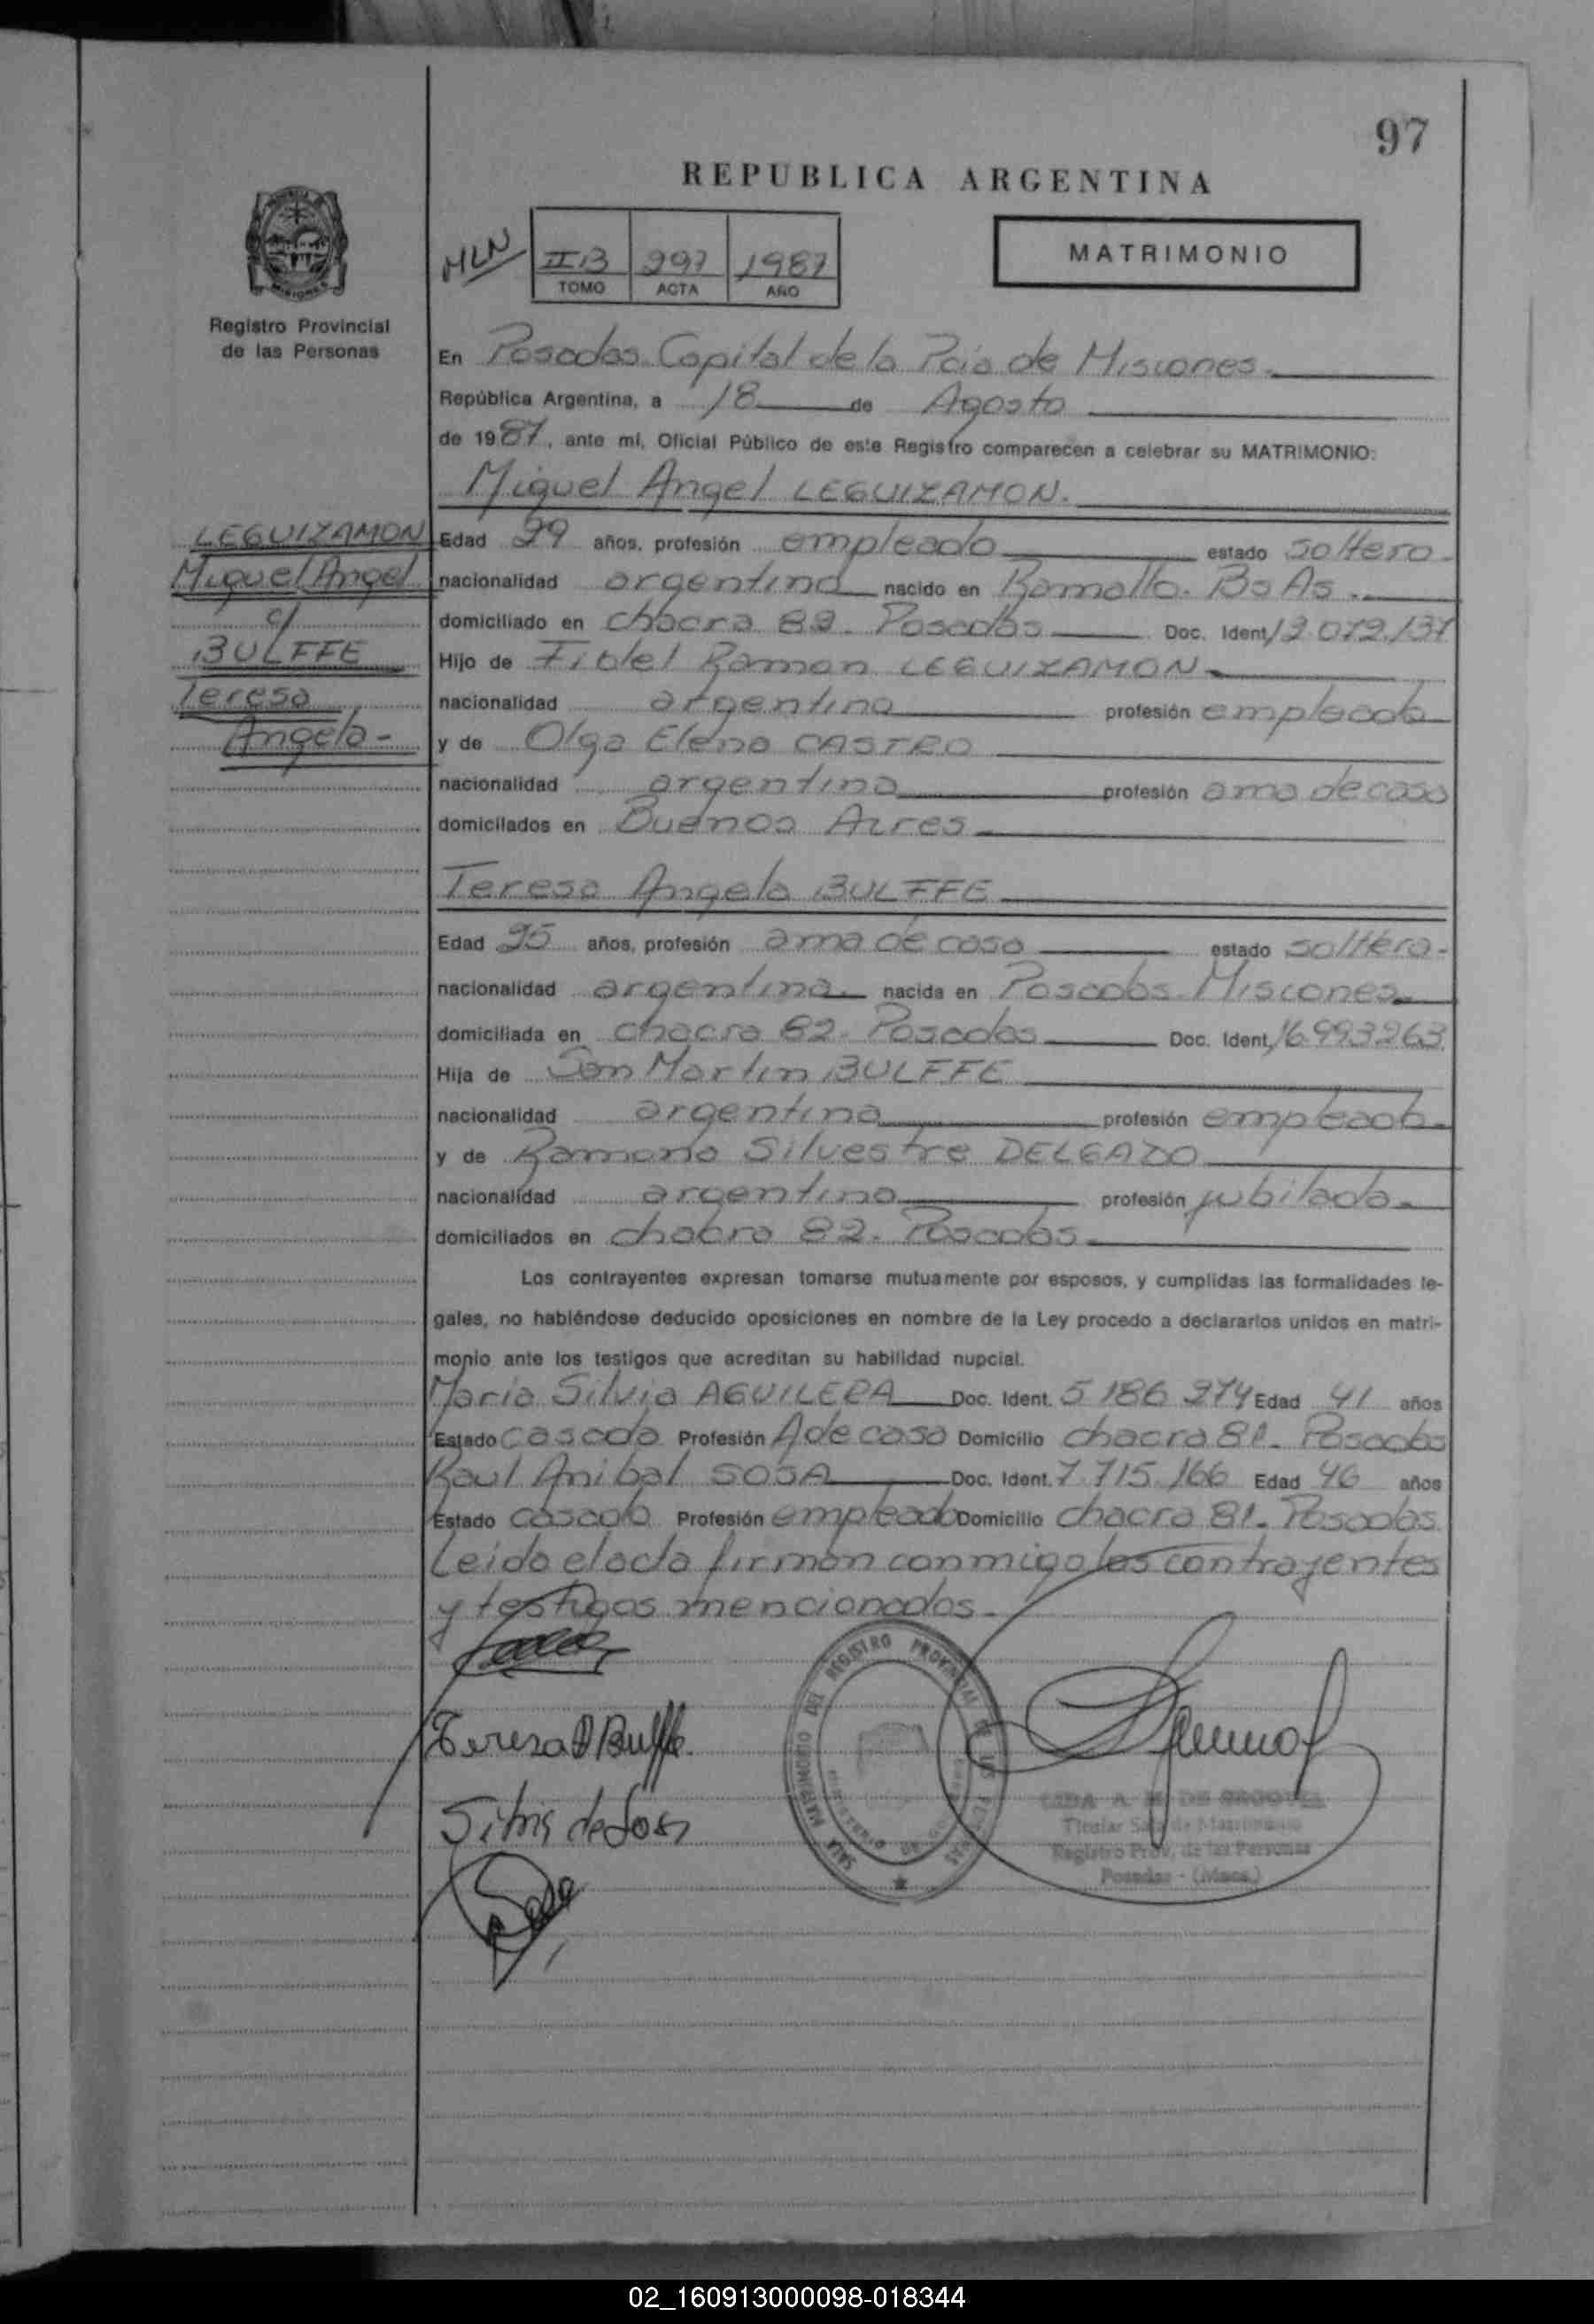 97
REPUBLICA ARGENTINA
MLN
II B 297 1987
TOMO ACTA AÑO
MATRIMONIO
Registro Provincial
de las Personas
En Posadas Capital de la Pcia de Misiones
República Argentina, a 18 de Agosto
de 1987, ante mí, Oficial Público de este Registro comparecen a celebrar su MATRIMONIO:
Miguel Angel LEGUIZAMON.
LEGUIZAMON
Miguel Angel
c/
BULFFE
Teresa
Angela-
Edad 29 años, profesión empleado estado soltero-
nacionalidad argentina nacido en Ramallo. Bs As.
domiciliado en chacra 82. Posadas Doc. Ident. 12.072.131
Hijo de Fidel Ramon LEGUIZAMON
nacionalidad argentina profesión empleado
y de Olga Elena CASTRO
nacionalidad argentina profesión ama de casa
domicilados en Buenos Aires
Teresa Angela BULFFE
Edad 25 años, profesión ama de casa estado soltera-
nacionalidad argentina nacida en Posadas Misiones
domiciliada en chacra 82. Posadas Doc. Ident. 16.993263
Hija de San Martin BULFFE
nacionalidad argentina profesión empleado
y de Ramona Silvestre DELGADO
nacionalidad argentina profesión jubilada
domiciliados en chacra 82. Posadas
Los contrayentes expresan tomarse mutuamente por esposos, y cumplidas las formalidades le-
gales, no habiéndose deducido oposiciones en nombre de la Ley procedo a declararlos unidos en matri-
monio ante los testigos que acreditan su habilidad nupcial.
Maria Silvia AGUILERA Doc. Ident. 5 186 274 Edad 41 años
Estado casada Profesión A de casa Domicilio chacra 81. Posadas
Raul Anibal SOSA Doc. Ident. 7.715.166 Edad 46 años
Estado casado Profesión empleado Domicilio chacra 81. Posadas
Leida el acta firman conmigo los contrayentes
y testigos mencionados-
Teresa A Bulffe
Silvia de Sosa
SALA MATRIMONIO DEL REGISTRO PROVINCIAL DE LAS PERSONAS
LIDA A. DE
Titular Sala de Matrimonio
Registro Prov. de las Personas
Posadas - (Mnes.)
02_160913000098-018344